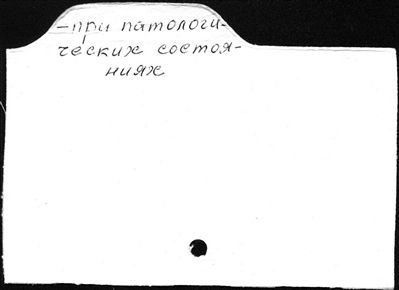 -при патологи-
ческих состоя-
ниях